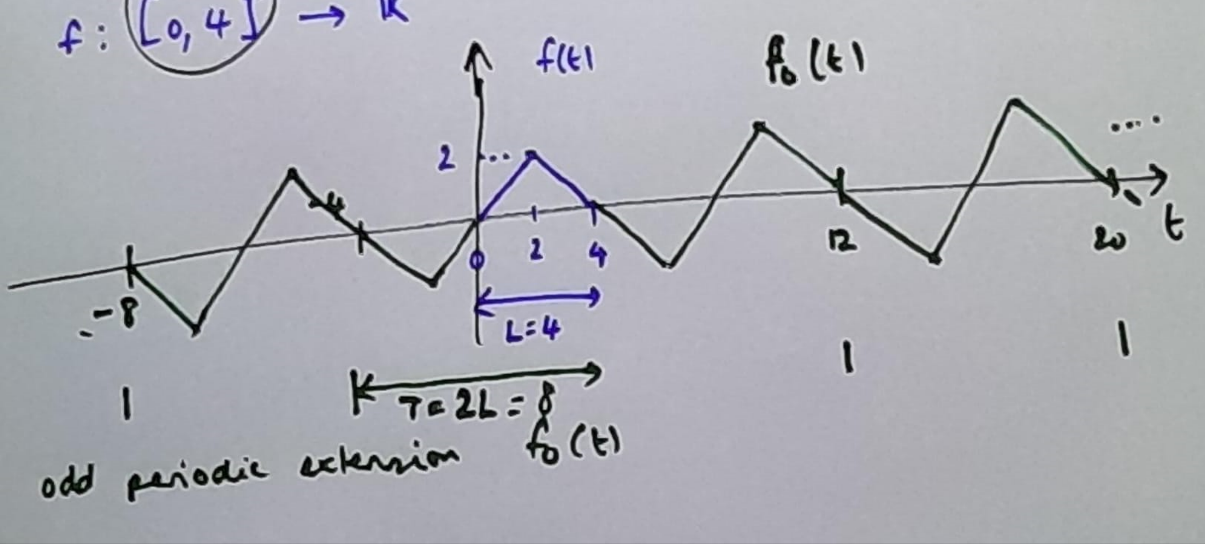 f: [0, 4] → R
f(t)
f₀(t)
2
....
-4
-8
0
2
4
12
20
t
L=4
T=2L=8
odd periodic extension f₀(t)